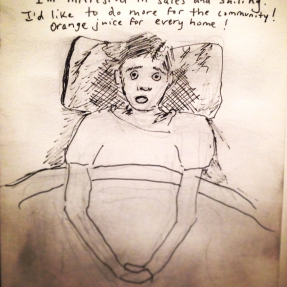 I'm interested in sales and smiling.
I'd like to do more for the community!
Orange juice for every home!